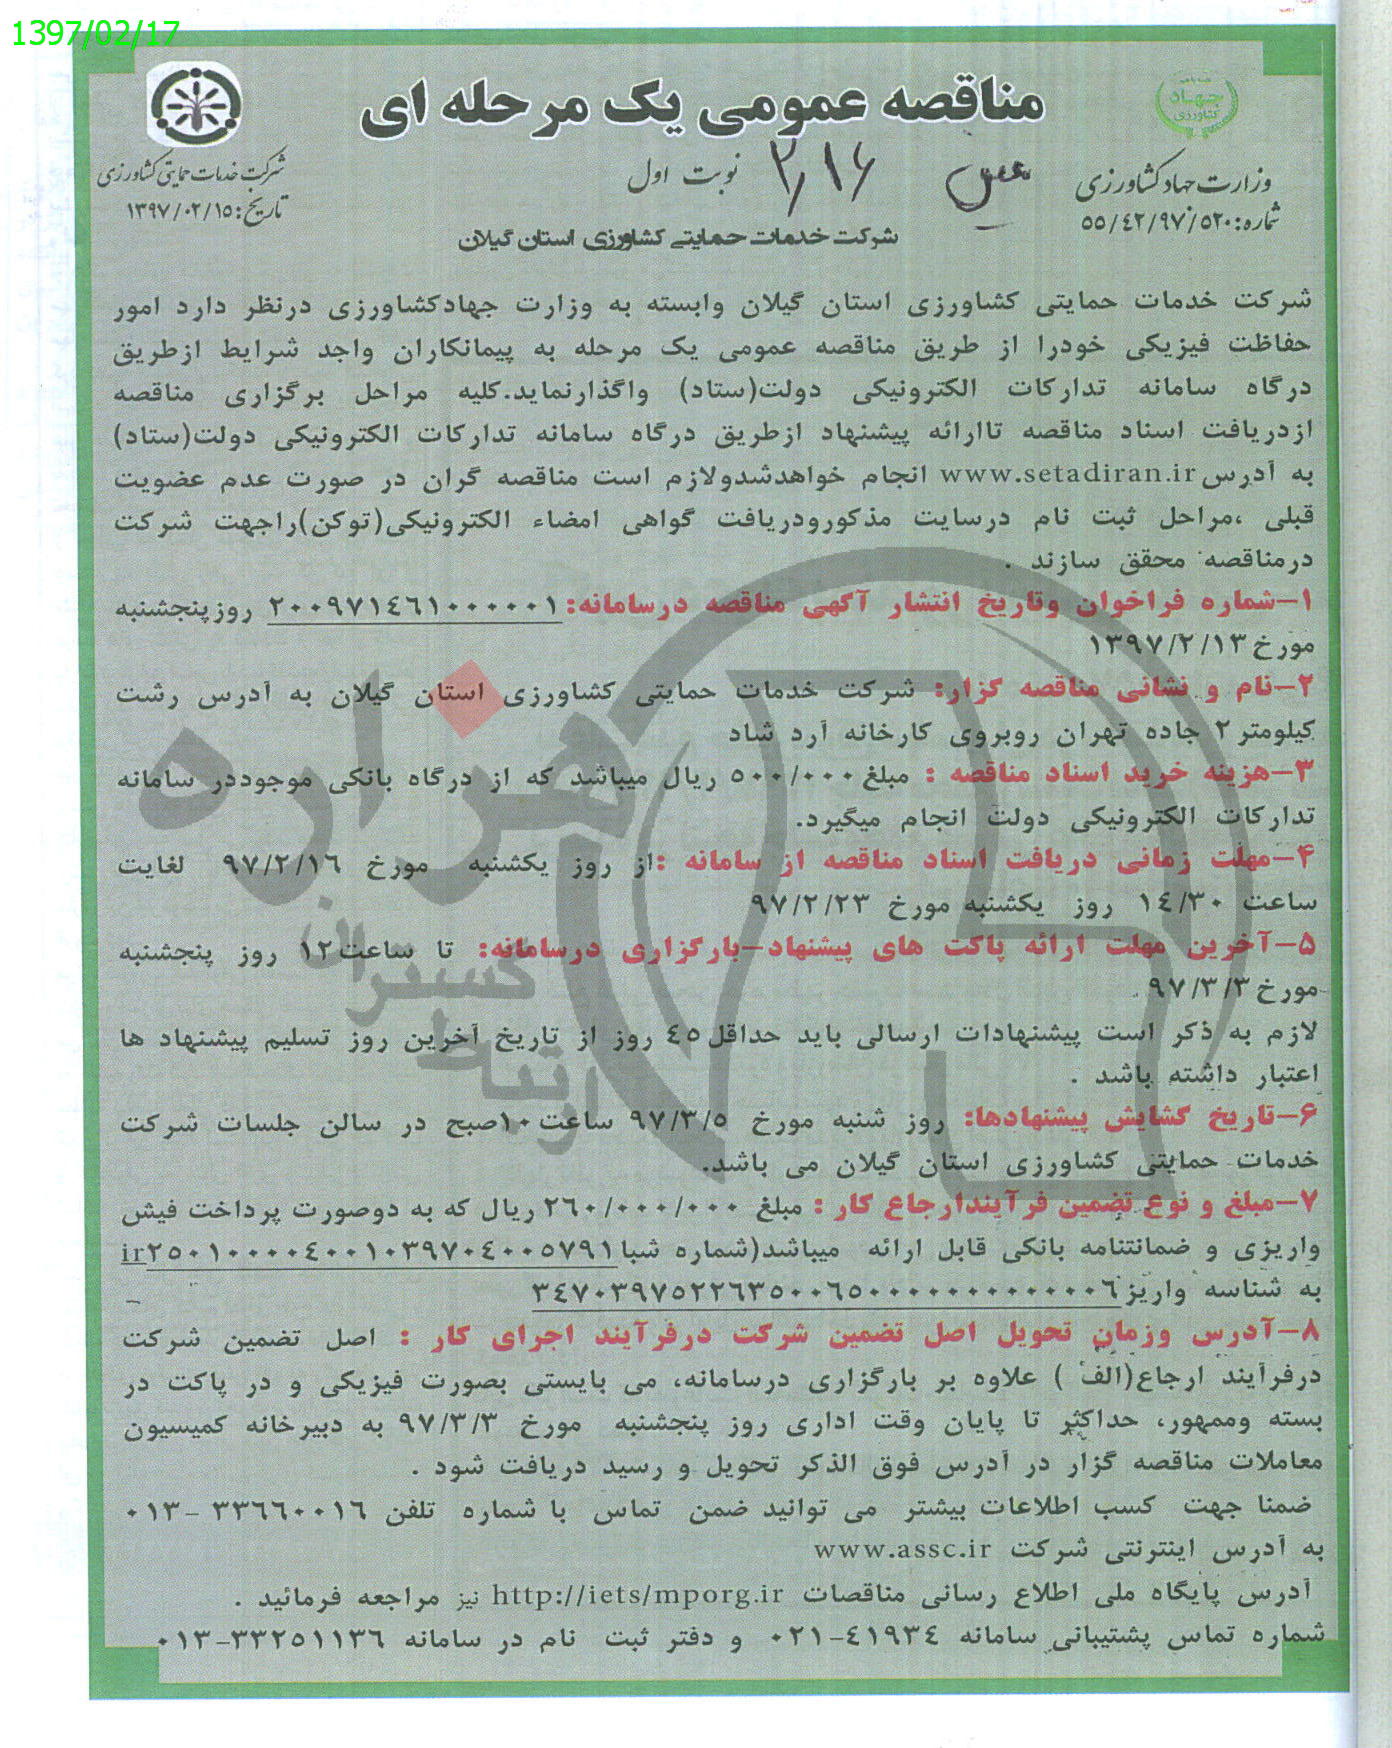 1397/02/17
جهاد
کشاورزی
مناقصه عمومی یک مرحله ای
وزارت جهاد کشاورزی
شماره: ۵۵/۴۲/۹۷/۵۲۰
۲/۱۶
نوبت اول
شرکت خدمات حمایتی کشاورزی
تاریخ: ۱۳۹۷/۰۲/۱۵
شرکت خدمات حمایتی کشاورزی استان گیلان
شرکت خدمات حمایتی کشاورزی استان گیلان وابسته به وزارت جهادکشاورزی درنظر دارد امور
حفاظت فیزیکی خودرا از طریق مناقصه عمومی یک مرحله به پیمانکاران واجد شرایط ازطریق
درگاه سامانه تدارکات الکترونیکی دولت(ستاد) واگذارنماید.کلیه مراحل برگزاری مناقصه
ازدریافت اسناد مناقصه تاارائه پیشنهاد ازطریق درگاه سامانه تدارکات الکترونیکی دولت(ستاد)
به آدرس www.setadiran.ir انجام خواهدشدولازم است مناقصه گران در صورت عدم عضویت
قبلی ،مراحل ثبت نام درسایت مذکورودریافت گواهی امضاء الکترونیکی(توکن)راجهت شرکت
درمناقصه محقق سازند .
۱-شماره فراخوان وتاریخ انتشار آگهی مناقصه درسامانه: ۲۰۰۹۷۱٤٦۱۰۰۰۰۰۱ روزپنجشنبه
مورخ ۱۳۹۷/۲/۱۳
۲-نام و نشانی مناقصه گزار: شرکت خدمات حمایتی کشاورزی استان گیلان به آدرس رشت
کیلومتر ۲ جاده تهران روبروی کارخانه آرد شاد
۳-هزینه خرید اسناد مناقصه : مبلغ ۵۰۰/۰۰۰ ریال میباشد که از درگاه بانکی موجوددر سامانه
تدارکات الکترونیکی دولت انجام میگیرد.
۴-مهلت زمانی دریافت اسناد مناقصه از سامانه :از روز یکشنبه مورخ ۹۷/۲/۱٦ لغایت
ساعت ۱٤/۳۰ روز یکشنبه مورخ ۹۷/۲/۲۳
۵-آخرین مهلت ارائه پاکت های پیشنهاد-بارگزاری درسامانه: تا ساعت ۱۲ روز پنجشنبه
مورخ ۹۷/۳/۳ .
لازم به ذکر است پیشنهادات ارسالی باید حداقل ٤۵ روز از تاریخ آخرین روز تسلیم پیشنهاد ها
اعتبار داشته باشد .
۶-تاریخ گشایش پیشنهادها: روز شنبه مورخ ۹۷/۳/۵ ساعت ۱۰صبح در سالن جلسات شرکت
خدمات حمایتی کشاورزی استان گیلان می باشد.
۷-مبلغ و نوع تضمین فرآیندارجاع کار : مبلغ ۲٦۰/۰۰۰/۰۰۰ ریال که به دوصورت پرداخت فیش
واریزی و ضمانتنامه بانکی قابل ارائه میباشد(شماره شبا ir۲۵۰۱۰۰۰۰٤۰۰۱۰۳۹۷۰٤۰۰۵۷۹۱
به شناسه واریز ۳٤۷۰۳۹۷۵۲۲٦۳۵۰۰٦۵۰۰۰۰۰۰۰۰۰۰۰۰۰٦
۸-آدرس وزمان تحویل اصل تضمین شرکت درفرآیند اجرای کار : اصل تضمین شرکت
درفرآیند ارجاع(الف ) علاوه بر بارگزاری درسامانه، می بایستی بصورت فیزیکی و در پاکت در
بسته وممهور، حداکثر تا پایان وقت اداری روز پنجشنبه مورخ ۹۷/۳/۳ به دبیرخانه کمیسیون
معاملات مناقصه گزار در آدرس فوق الذکر تحویل و رسید دریافت شود .
ضمنا جهت کسب اطلاعات بیشتر می توانید ضمن تماس با شماره تلفن ۳۳٦٦۰۰۱٦ -۰۱۳
به آدرس اینترنتی شرکت www.assc.ir
آدرس پایگاه ملی اطلاع رسانی مناقصات http://iets/mporg.ir نیز مراجعه فرمائید .
شماره تماس پشتیبانی سامانه ٤۱۹۳٤-۰۲۱ و دفتر ثبت نام در سامانه ۳۳۲۵۱۱۳٦-۰۱۳
هزاره
گستران
ارتباط